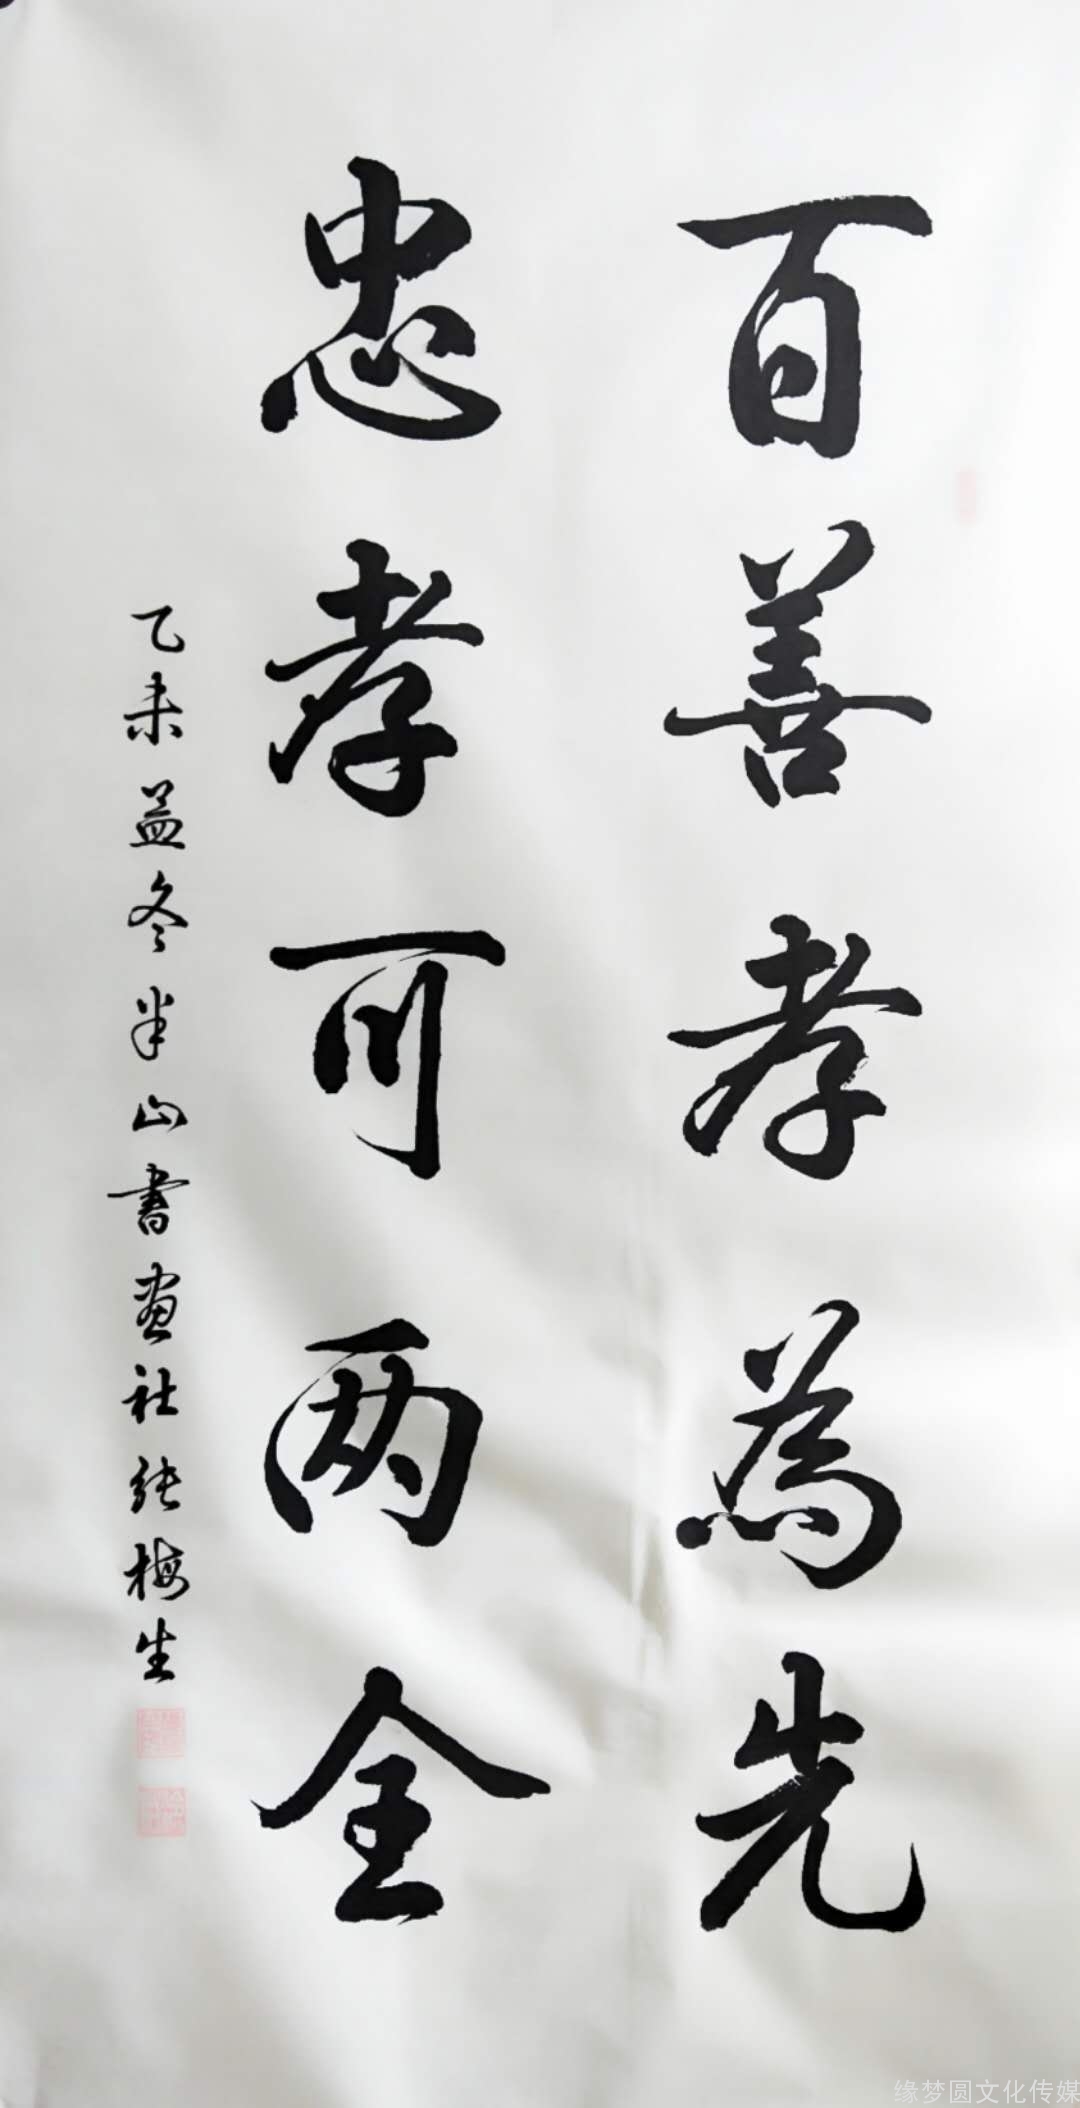 百善孝為先
忠孝可两全
乙未孟冬半山書画社張梅生
缘梦圆文化传媒